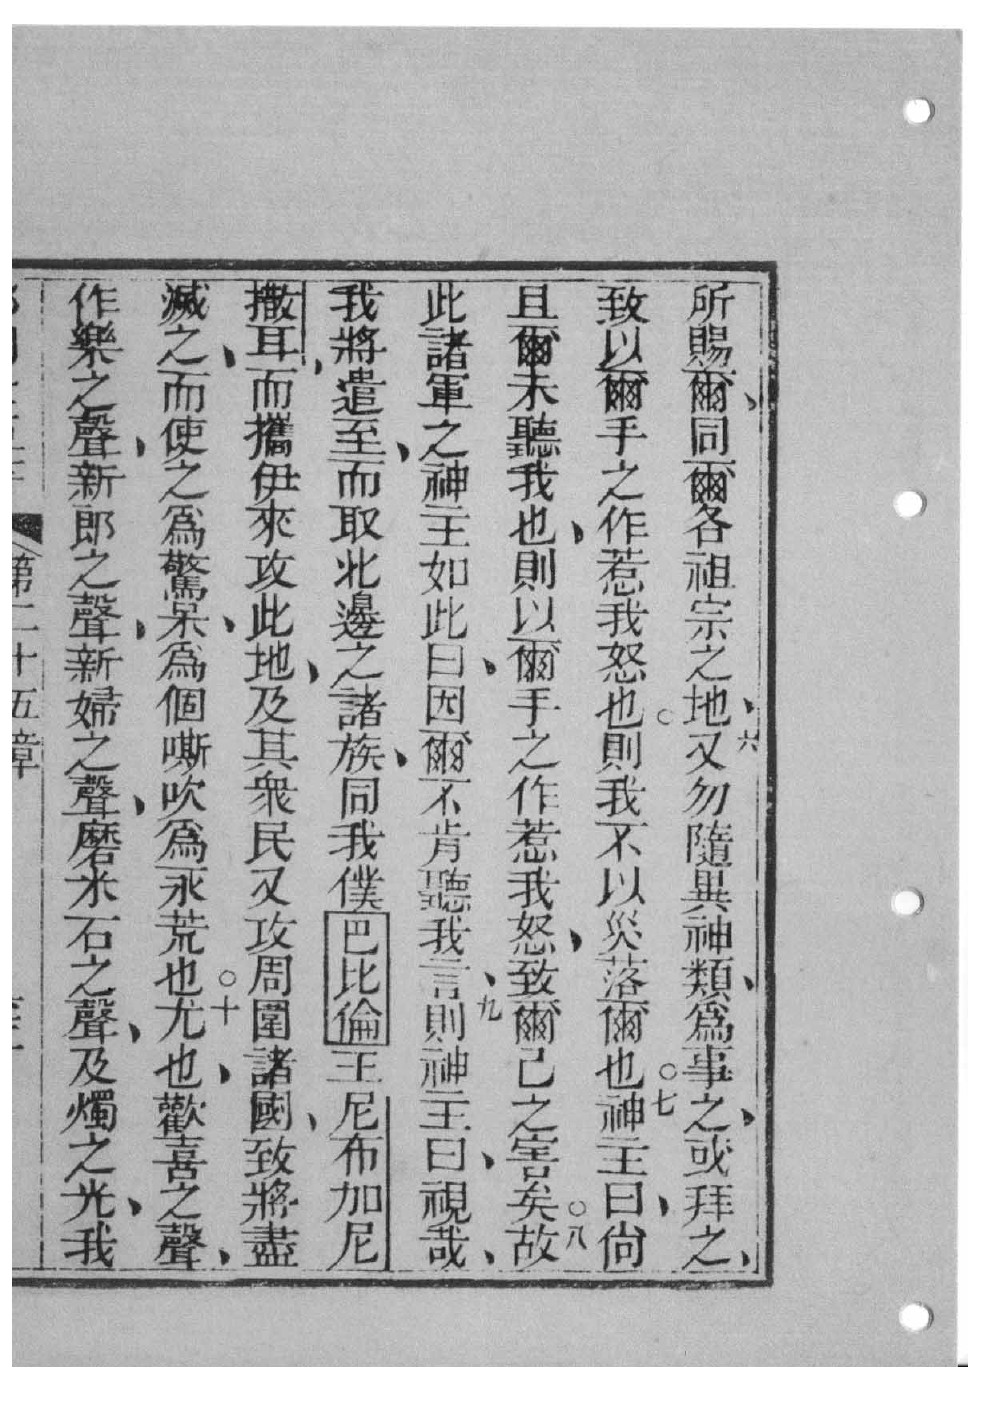 所賜爾、同爾各祖宗之地、六又勿隨異神類、爲事之、或拜之、
致以爾手之作惹我怒也○則我不以災落爾也○七神主曰、尙
且爾未聽我也、則以爾手之作惹我怒、致爾己之害矣○八故
此諸軍之神主如此曰、因爾不肯聽我言、九則神主曰、視哉、
我將遣至、而取北邊之諸族、同我僕巴比倫王尼布加尼
撒耳、而攜伊來攻此地、及其衆民又攻周圍諸國、致將盡
滅之、而使之爲驚呆、爲個嘶吹爲永荒也○十尤也、歡喜之聲、
作樂之聲、新郎之聲、新婦之聲、磨米石之聲、及燭之光、我
第二十五章